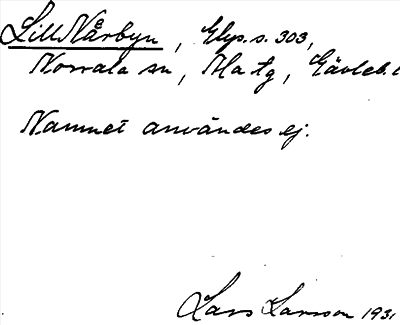 Lill Nårbyn, Glyp. s. 303,
Norrala sn, Ala tg, Gävleb. l
Namnet användes ej.
Lars Larsson 1931